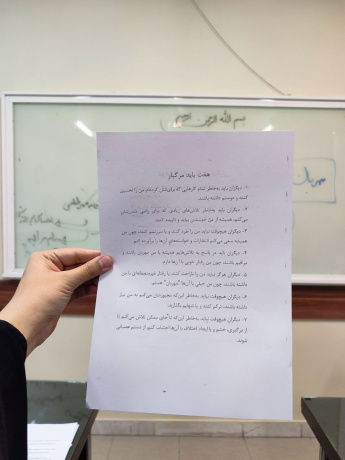 بسم الله الرحمن الرحیم
هفت باید مرگبار
۱- دیگران باید به‌خاطر تمام کارهایی که برایشان کرده‌ام من را تحسین
کنند و دوستم داشته باشند.
۲- دیگران باید به‌خاطر تلاش‌های زیادی که برای راضی کردنشان
می‌کنم همیشه از من خوششان بیاید و تاییدم کنند.
۳- دیگران هیچ‌وقت نباید من را طرد کنند و یا سرزنشم کنند، چون
همیشه سعی می‌کنم انتظارات و خواسته‌های آن‌ها را برآورده کنم.
۴- دیگران باید در پاسخ به تلاش‌هایم همیشه با من مهربان باشند و
مراقبم باشند، چون من رفتار خوبی با آن‌ها دارم.
۵- دیگران هرگز نباید من را ناراحت کنند یا رفتار غیرمنصفانه‌ای با من
داشته باشند، چون من خیلی با آن‌ها "مهربان" هستم.
۶- دیگران هیچ‌وقت نباید به‌خاطر این‌که مجبورشان می‌کنم به من نیاز
داشته باشند، ترکم کنند و یا تنهایم بگذارند.
۷- دیگران هیچ‌وقت نباید به‌خاطر این‌که تا جای ممکن تلاش می‌کنم تا
از درگیری، خشم و یا ایجاد اختلاف با آن‌ها اجتناب کنم از دستم عصبانی
شوند.